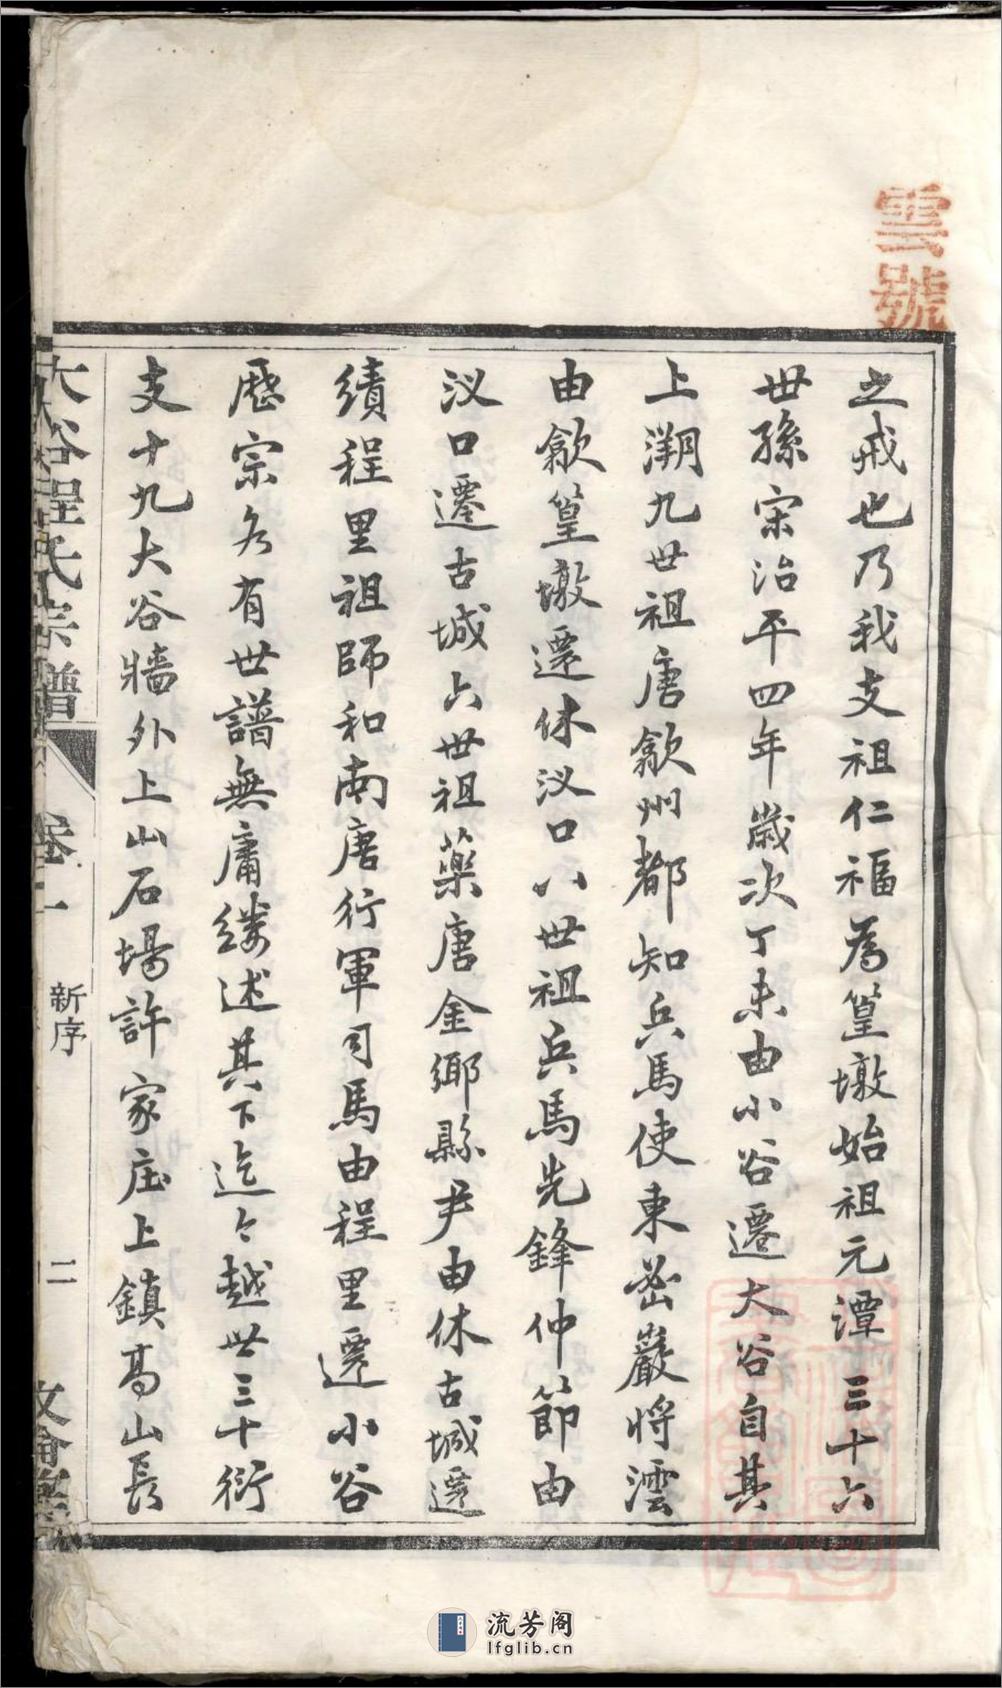 雲號
之戒也乃我支祖仁福為篁墩始祖元潭三十六
世孫宋治平四年歲次丁未由小谷遷大谷自其
上溯九世祖唐歙州都知兵馬使東密巖將澐
由歙篁墩遷休汊口八世祖兵馬先鋒仲節由
汊口遷古城六世祖藥唐金鄉縣尹由休古城遷
績程里祖師和南唐行軍司馬由程里遷小谷
歷宗各有世譜無庸縷述其下迄々越世三十衍
支十九大谷牆外上山石塲許家庄上鎮髙山長
大谷程氏宗譜
卷一
新序
二
流芳阁
lfglib.cn